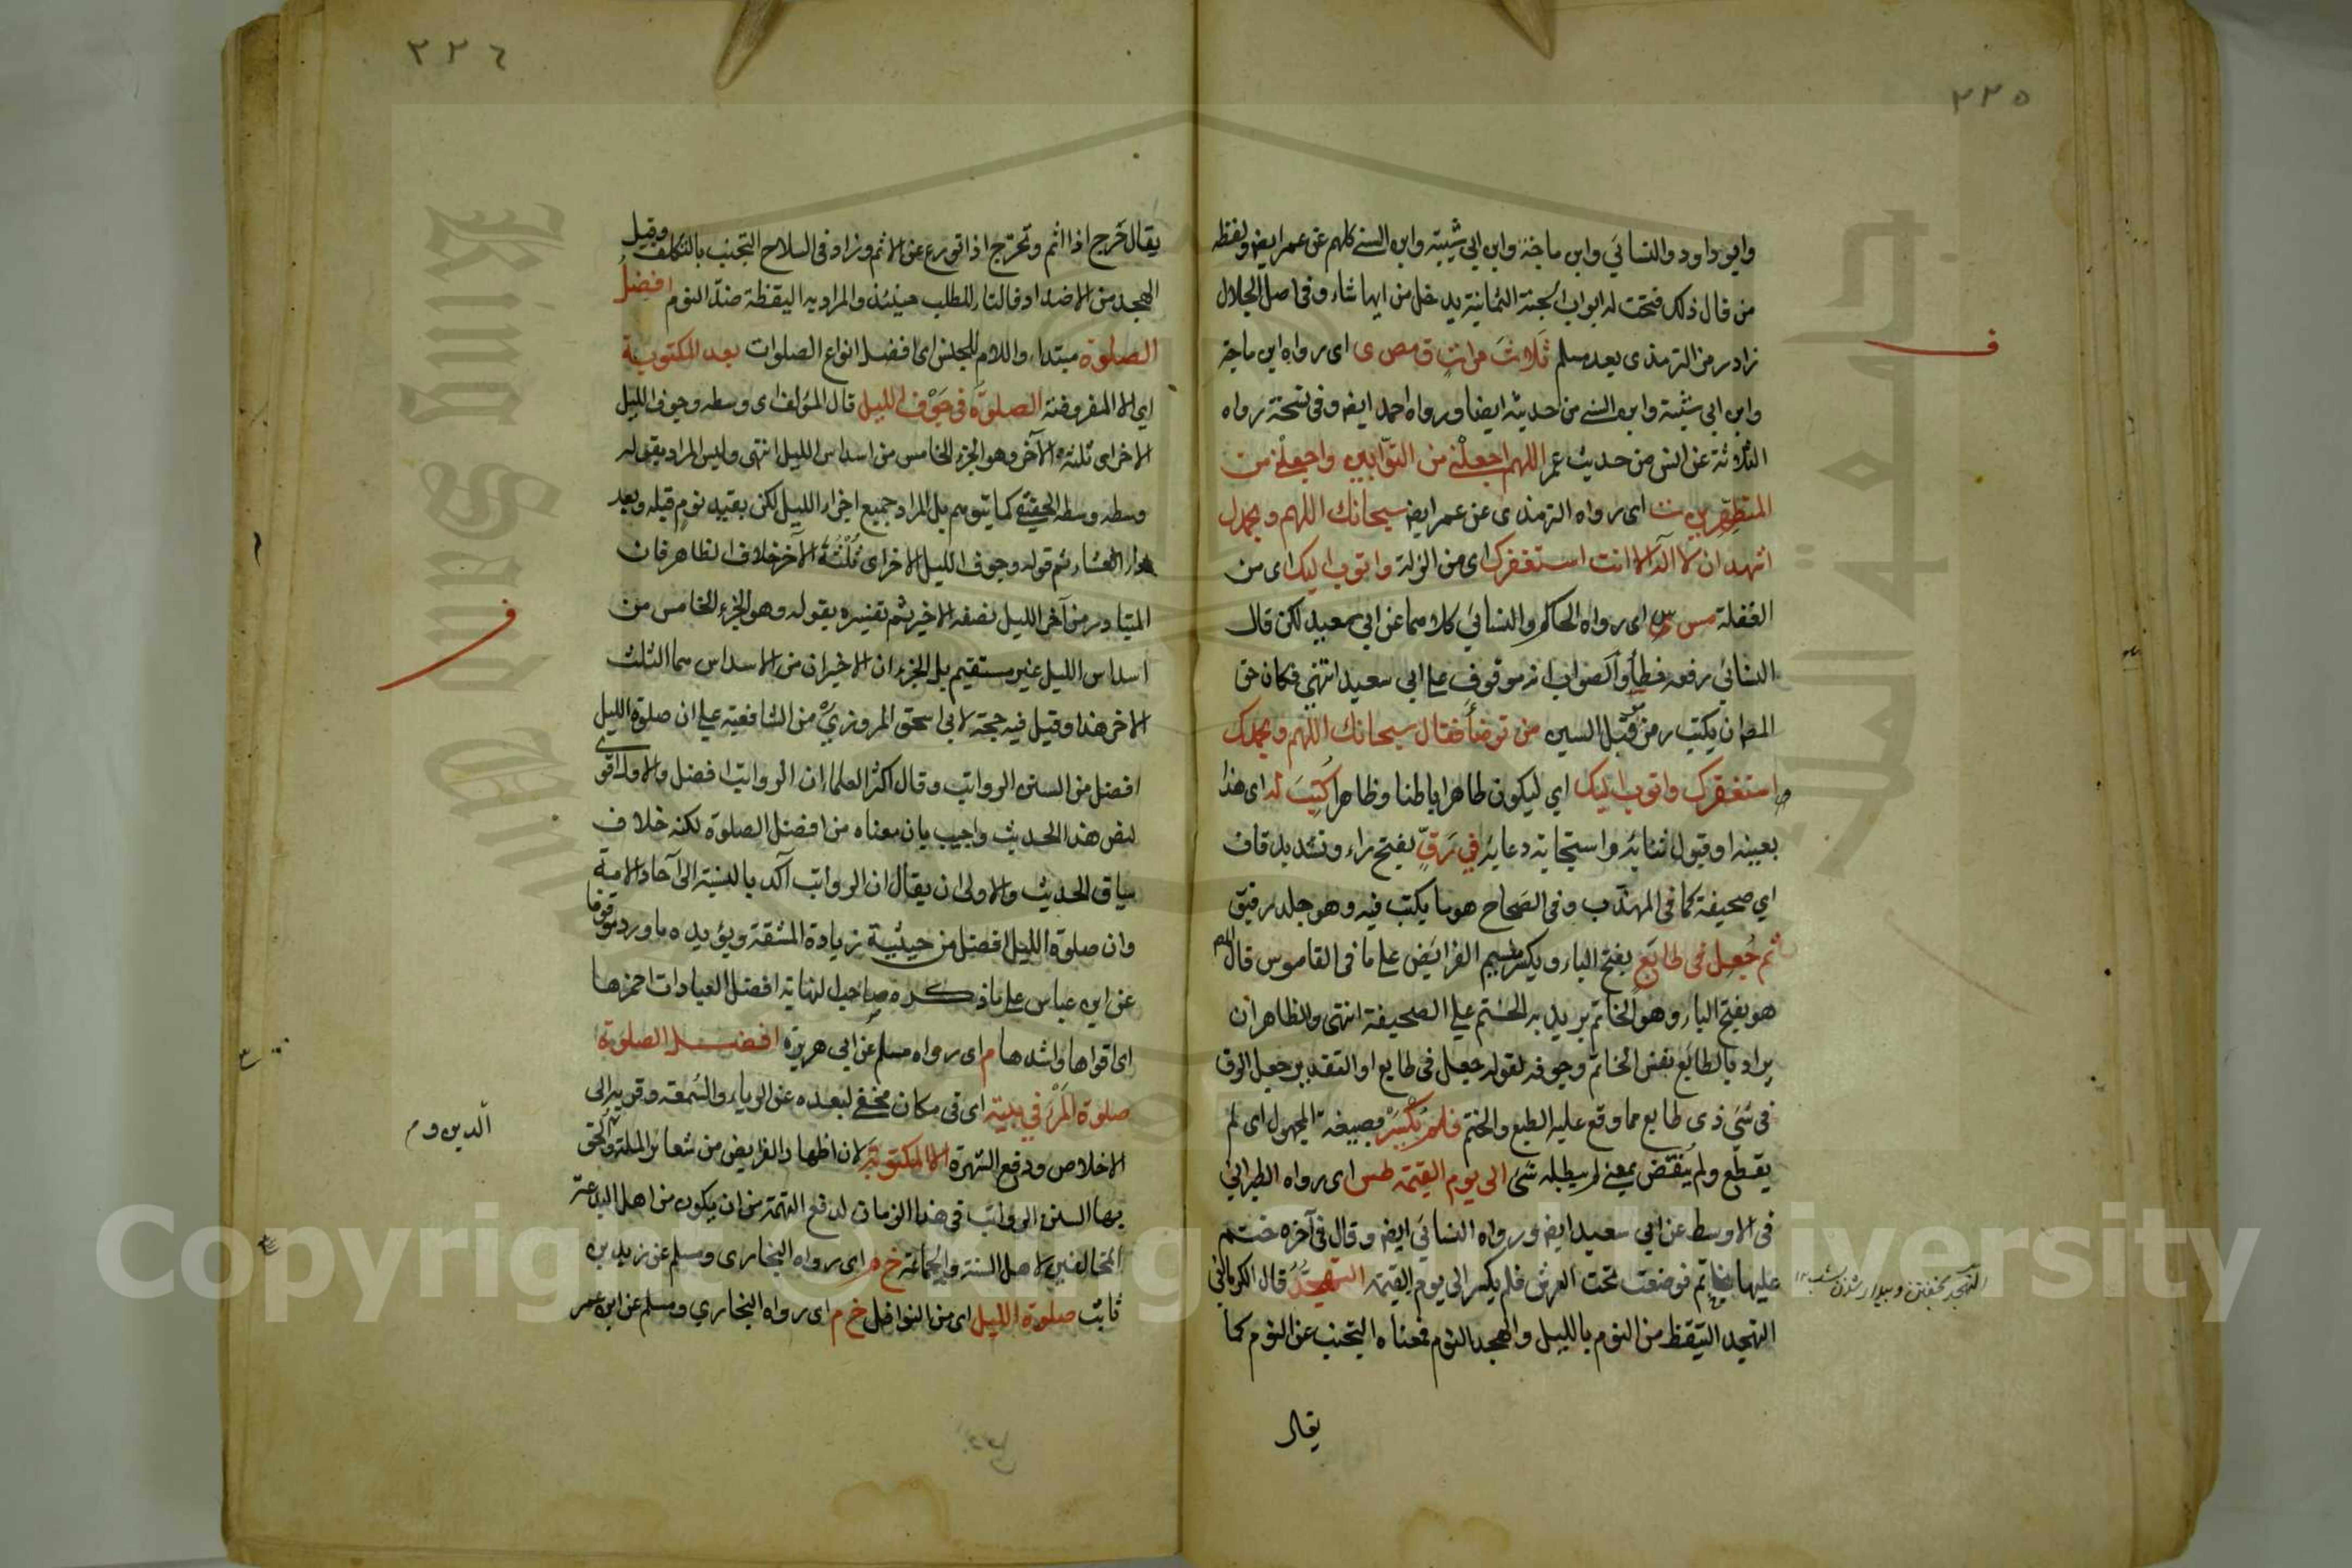 ٣٣٥
وابو داود والنسائي وابن ماجة وابن ابي شيبة وابن السني كلهم عن عمر ايضا ولفظه
من قال ذلك فتحت له ابواب الجنة الثمانية يدخل من ايها شاء وفي اصل الجلال
زاد رمز الترمذي بعد مسلم ثلاث مرات ق مص ى اى رواه ابن ماجة
وابن ابي شيبة وابن السني من حديثه ايضا ورواه احمد ايضا وفي نسخة رواه
الثلاثة عن انس من حديث عمر اللهم اجعلني من التوابين واجعلني من
المتطهرين ت اى رواه الترمذى عن عمر ايضا سبحانك اللهم وبحمدك
اشهد ان لا اله الا انت استغفرك اى من الزلة واتوب اليك اى من
الغفلة مس س اى رواه الحاكم والنسائي كلاهما عن ابي سعيد لكن قال
النسائي رفعه خطأ والصواب انه موقوف على ابي سعيد انتهى فكان حق
المص ان يكتب رمز قبل السين من توضأ فقال سبحانك اللهم وبحمدك
استغفرك واتوب اليك اي ليكون طاهرا باطنا وظاهرا كتب له اى هذا
بعينه او قبول ثنائه واستجابة دعائه في رق بفتح راء وتشديد قاف
اي صحيفة كما في المهذب وفي الصحاح هو ما يكتب فيه وهو جلد رقيق
ثم جعل في طابع بفتح الباء ويكسر ميسم الفرائض على ما في القاموس قال المص
هو بفتح الباء وهو الخاتم يريد به الختم على الصحيفة انتهى والظاهر ان
يراد بالطابع نفس الخاتم وجوفه لقوله جعل في طابع او التقدير جعل الرق
في شئ ذى طابع مما وقع عليه الطبع والختم فلم يكسر بصيغة المجهول اى لم
يقطع ولم ينقض بمعنى لم يبطله شئ الى يوم القيمة طس اى رواه الطبراني
في الاوسط عن ابي سعيد ايضا ورواه النسائي ايضا وقال في آخره ختم
عليها بخاتم فوضعت تحت العرش فلم يكسر الى يوم القيمة التهجد قال الكرماني
التهجد التيقظ من النوم بالليل والهجد النوم فمعناه التجنب عن النوم كما
يقال
ف
٣٣٦
يقال حرج اذا اثم وتحرج اذا تورع عن الاثم وزاد في السلاح التجنب بالتكلف وقيل
الهجد من الاضداد فالتاء للطلب حينئذ والمراد به اليقظة ضد النوم افضل
الصلوة مبتداء واللام للجنس اى افضل انواع الصلوات بعد المكتوبة
اي الا المفروضة الصلوة في جوف الليل قال المؤلف اى وسطه وجوف الليل
الاخر اى ثلثه الآخر وهو الجزء الخامس من اسداس الليل انتهى وليس المراد بقوله
وسطه وسطه الحقيقي كما يتوهم بل المراد جميع اجزاء الليل لكن بقيد نوم قبله وبعد
العشاء ثم قوله وجوف الليل الاخر اى ثلثه الآخر خلاف الظاهر فان
المتبادر من آخر الليل نصفه الاخير ثم تفسيره بقوله وهو الجزء الخامس من
اسداس الليل غير مستقيم بل الجزء ان الاخيران من الاسداس هما الثلث
الاخر هذا وقيل فيه حجة لابي اسحق المروزي من الشافعية على ان صلوة الليل
افضل من السنن الرواتب وقال اكثر العلماء ان الرواتب افضل والاول اقوى
لنص هذا الحديث واجيب بان معناه من افضل الصلوة لكنه خلاف
سياق الحديث والاولى ان يقال ان الرواتب آكد بالنسبة الى آحاد الامة
وان صلوة الليل افضل من حيثية زيادة المشقة ويؤيده ما ورد موقوفا
عن ابن عباس على ما ذكره صاحب النهاية افضل العبادات احمزها
اى اقواها واشدها م اى رواه مسلم عن ابي هريرة افضل الصلوة
صلوة المرء في بيته اى في مكان مخفي لبعده عن الرياء والسمعة وقربه الى
الاخلاص ودفع الشهرة الا المكتوبة لان اظهار الفرايض من شعائر الملة ويلحق
بها السنن الرواتب في هذا الزمان لدفع التهمة من ان يكون من اهل البدعة
المخالفين لاهل السنة والجماعة خ م اى رواه البخارى ومسلم عن زيد بن
ثابت صلوة الليل اى من النوافل خ م اى رواه البخاري ومسلم عن ابن عمر
ف
الدين وم
Copyright © King Saud University